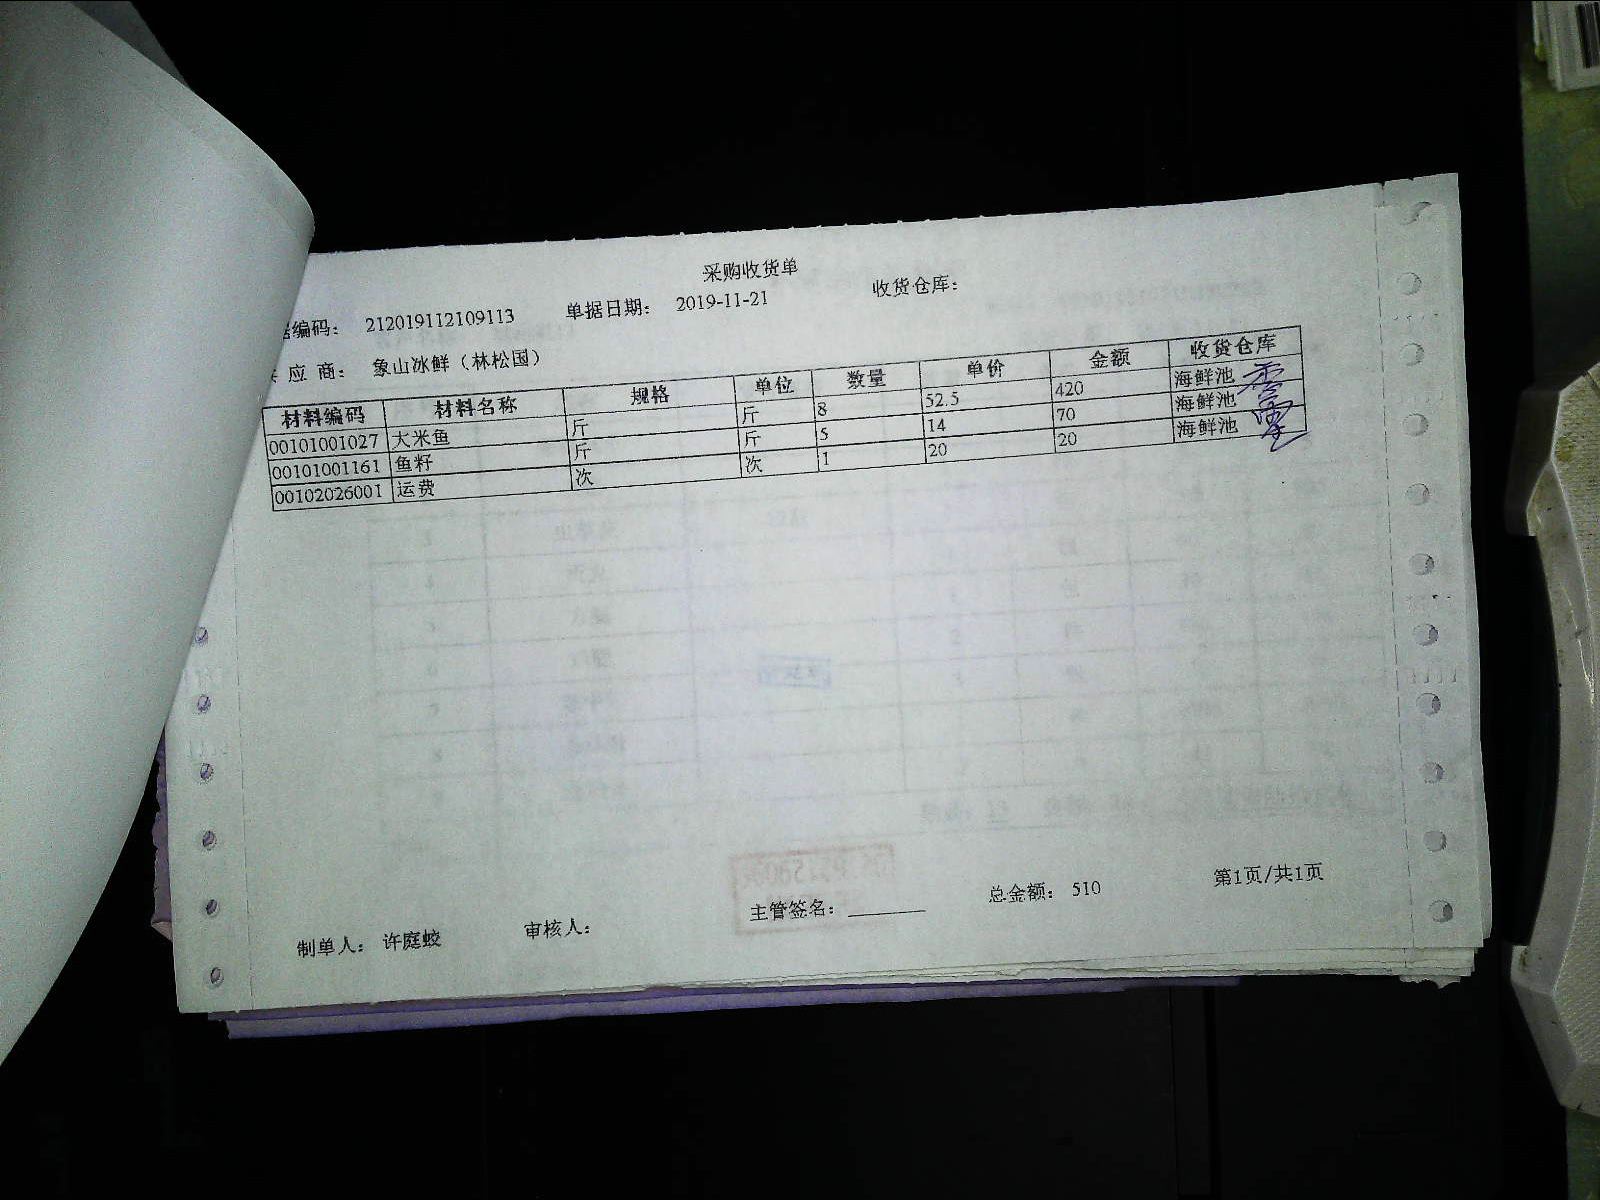 采购收货单
编码： 212019112109113 单据日期： 2019-11-21 收货仓库：
应 商： 象山冰鲜（林松国）
材料编码 材料名称 规格 单位 数量 单价 金额 收货仓库
00101001027 大米鱼 斤 斤 8 52.5 420 海鲜池
00101001161 鱼籽 斤 斤 5 14 70 海鲜池
00102026001 运费 次 次 1 20 20 海鲜池
制单人： 许庭蛟 审核人： 主管签名： 总金额： 510 第1页/共1页